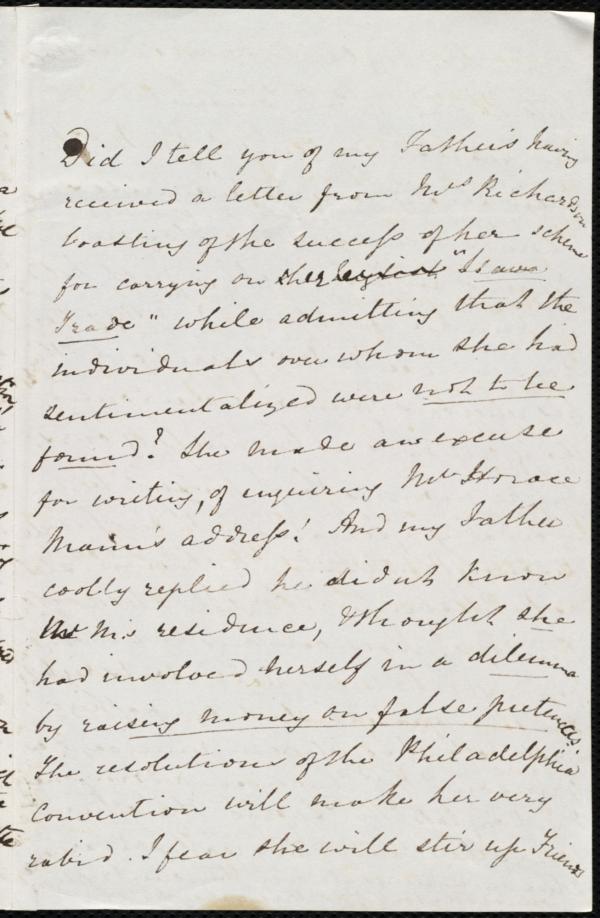 Did I tell you of my Father's having
received a letter from Mrs Richardson
boasting of the success of her scheme
for carrying on "Slave
Trade" while admitting that the
individuals over whom she had
sentimentalized were not to be
found? She made an excuse
for writing, of inquiring Mr Horace
Mann's address! And my Father
coolly replied he didn't know
his residence, & thought she
had involved herself in a dilemma
by raising money on false pretences.
The resolutions of the Philadelphia
Convention will make her very
rabid. I fear she will stir up Friends